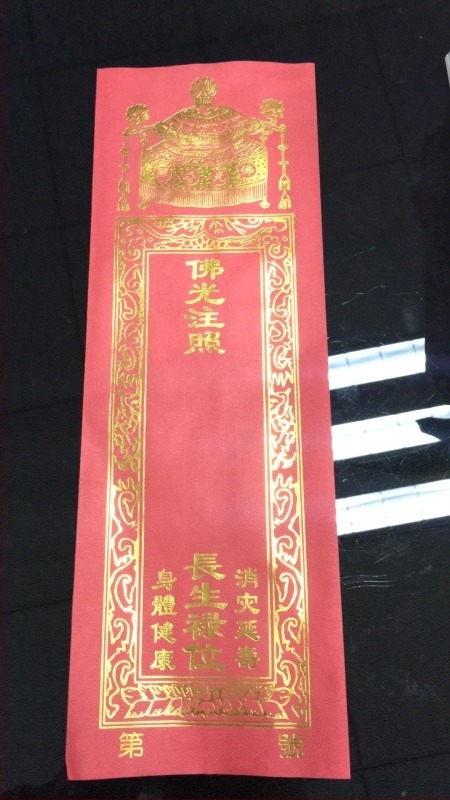 佛光注照
消灾延壽
長生禄位
身體健康
第 號